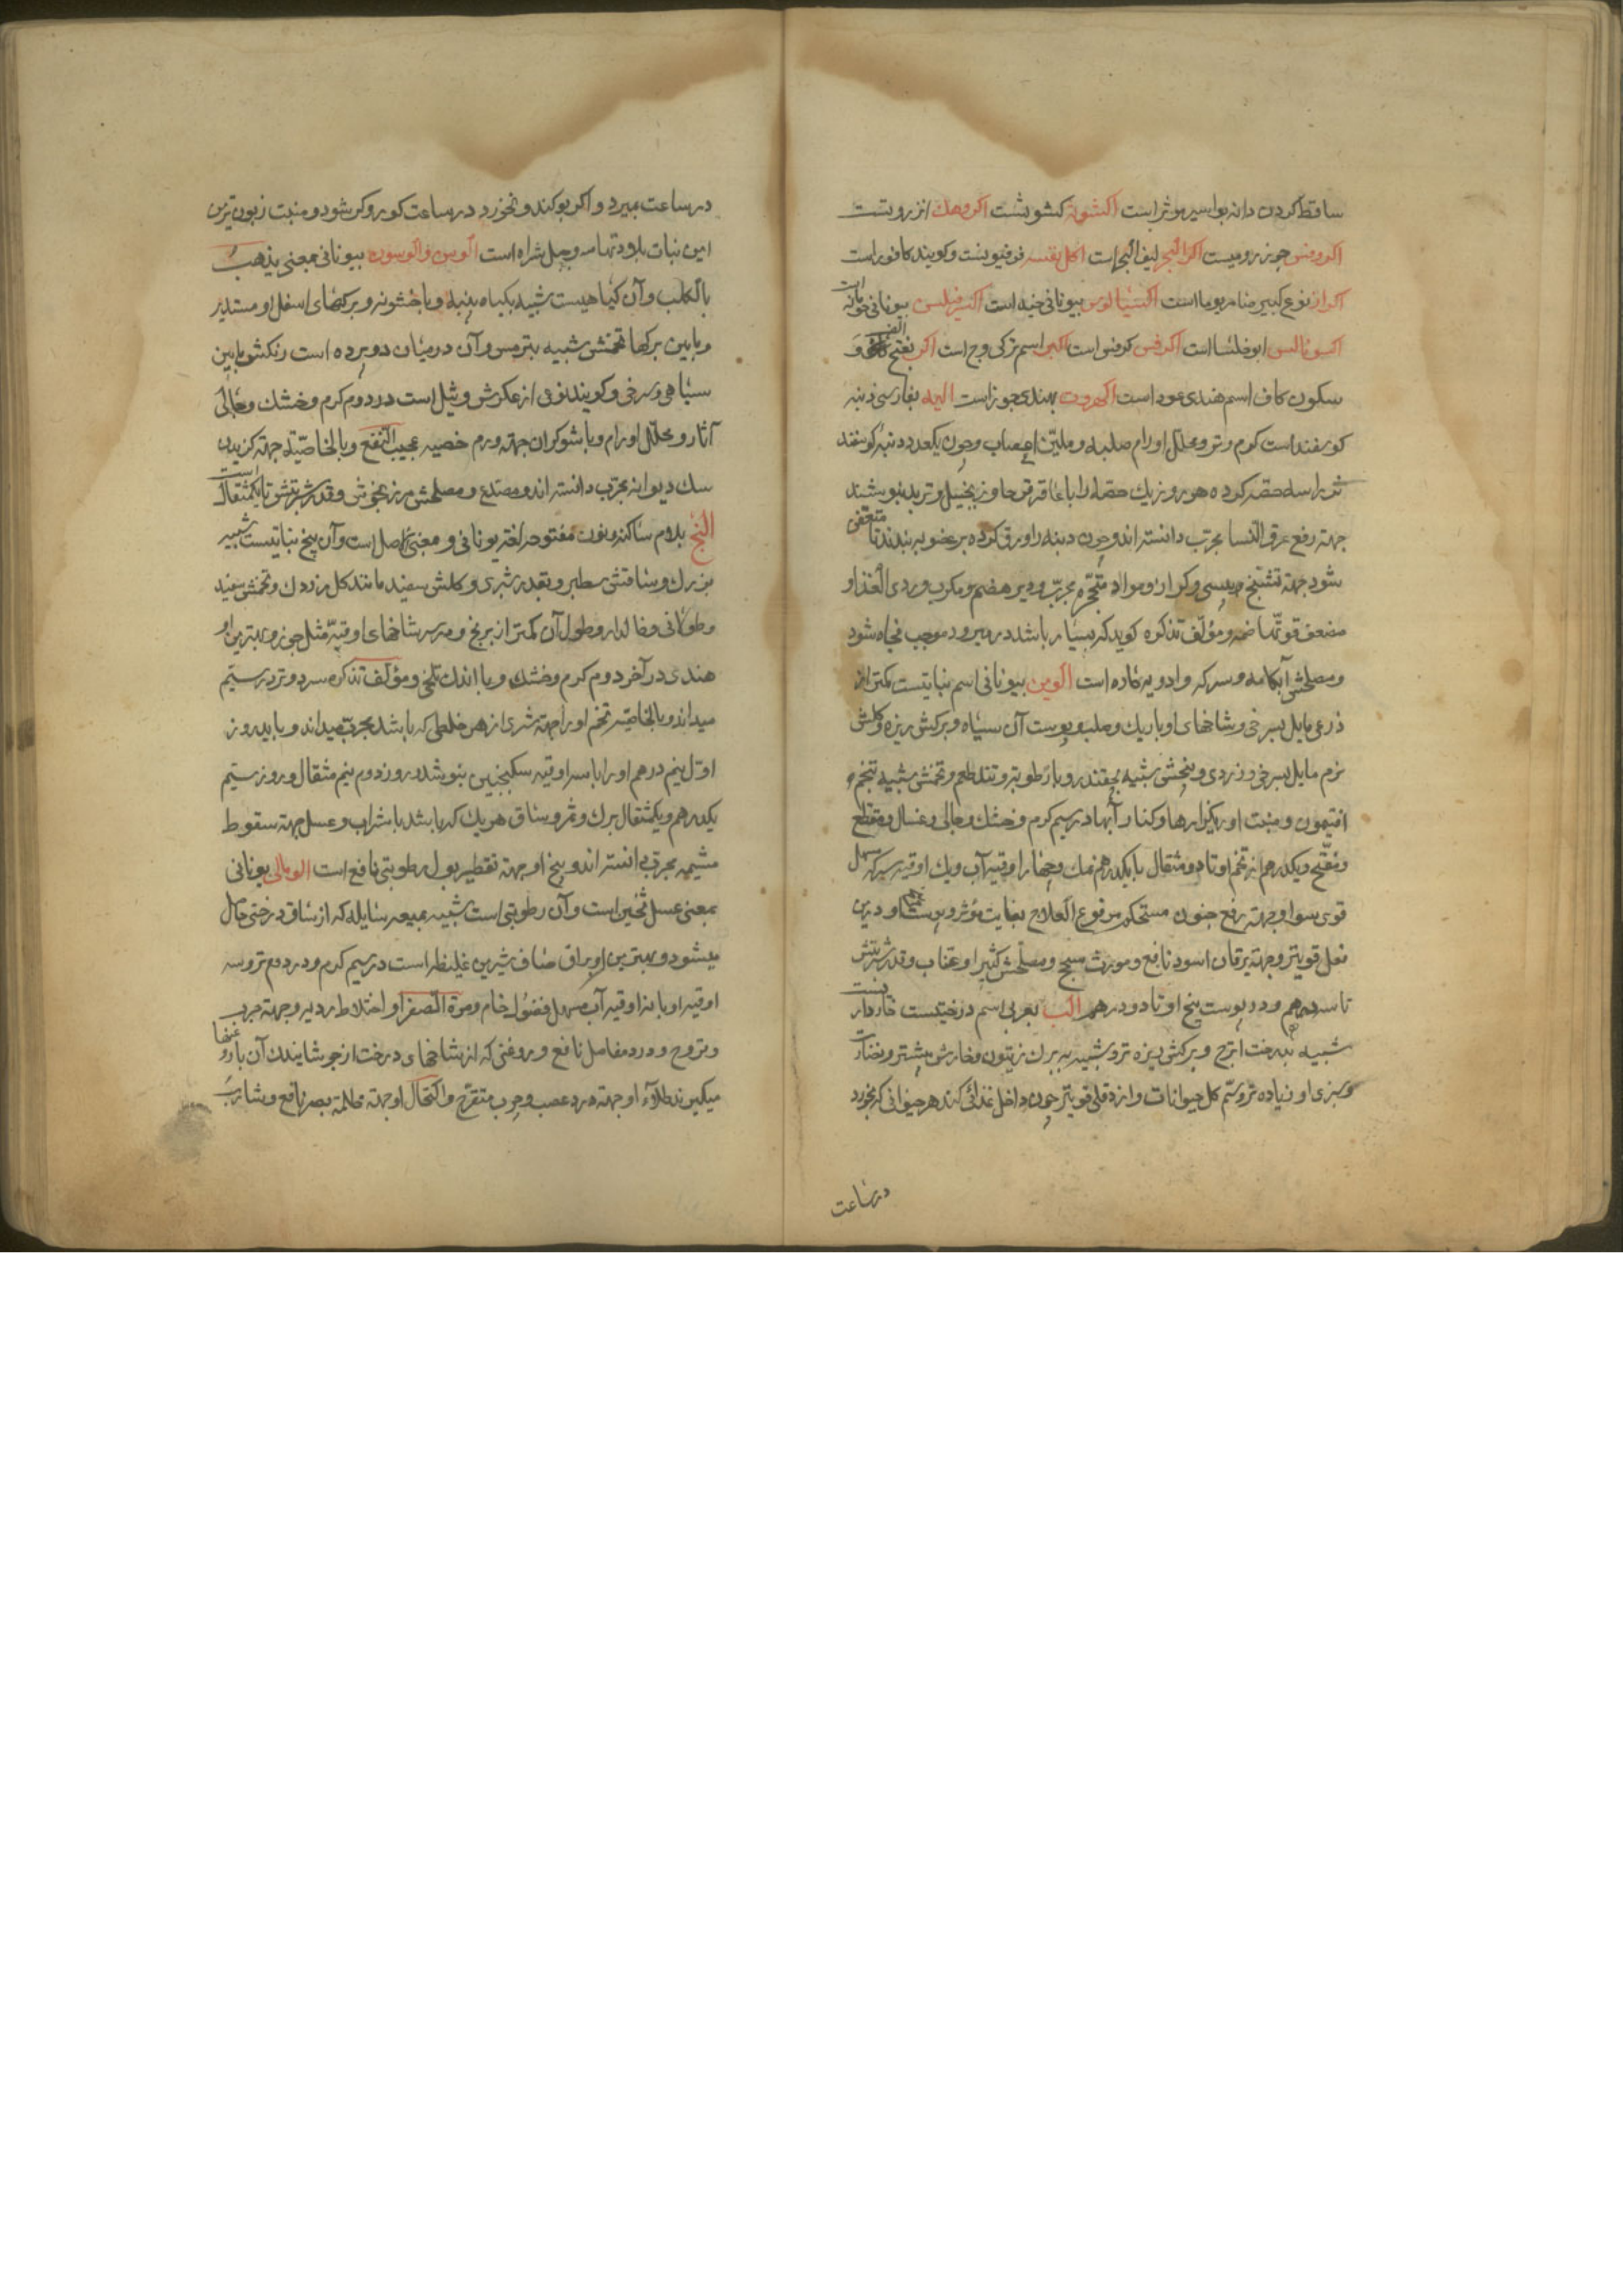 ساقط کردن دانه بواسیر موثر است اکشوث کشوثست اکروهک انزروتست
اکروفس جوز رومیست اکر البحر لیف البحر است اکل نفسه فرفیونست و کویند کافور است
اکرار نوع کبیر صامریوما است بیونانی حبه است بیونانی
ابوخلسا است اکرفس کرفس است اکر اسم ترکی وج است اکر بفتح الف و
سکون کاف اسم هندی عود است اکهروت بهندی جوز است الیه بفارسی دنبه
کوسفند است کرم وتر و محلل اورام صلبه و ملین اعصاب و چون یکعدد دنبه کوسفند
نر را سه حصه کرده هر روز یک حصه را با عاقرقرحا و زنجبیل و تربد بنوشند
جهته رفع عرق النسا مجرب دانسته اند و چون دنبه را ورق کرده بر عضو به بندند تا متعفن
شود جهته تشنج یبسی و کزاز و مواد متحجره مجرب و دیر هضم و مکرب و ردی الغذا و
مضعف قوة هاضمه و مؤلف تذکره کوید که بسیار باشد در میرود موجب فجاه شود
و مصلحش آبکامه و سرکه و ادویه حاره است الوین بیونانی اسم نباتیست کمتر از
ذرعی مایل بسرخی و شاخهای او باریک و صلب و پوست آن سیاه و برکش ریزه و کلش
نرم مایل بسرخی و زردی و بیخش شبیه بچقندر و با رطوبت و تند طعم و تخمش شبیه بتخم
افتیمون و منبت او ریکزارها و کنار آبها در سیم کرم و خشک و جالی و غسال و مقطع
و مفتح و یکدرهم از تخم او تا دو مثقال با یکدرهم نمک و چهار اوقیه آب و یک اوقیه سرکه مسهل
قوی سودا و جهته رفع جنون مستحکم مرفوع العلاج بغایت مؤثر و پوست بیخ او درین
فعل قویتر و جهته یرقان اسود نافع و مورث سحج و مصلحش کثیرا و عناب و قدر شربتش
تا سه درهم و در پوست بیخ او تا دو درهم الب بعربی اسم درختیست خاردار
شبیه بدرخت اترج و برکش ریزه تر و شبیه به برک زیتون و خارش بیشتر و نضارت
و سبزی او زیاده تر و سم کل حیوانات و از دفلی قویتر چون داخل غذائی کنند هر حیوانی که بخورد
درساعت
درساعت بمیرد و اکر بو کند و نخورد درساعت کور و کر شود و منبت زبون ترین
این نبات بلاد تهامه و جبل شراه است الوسن و الوسون بیونانی بمعنی یذهب
بالکلب و آن کیاهیست شبیه بکیاه پنبه و با خشونه و برکهای اسفل او مستدیر
و مابین برکها تخمش شبیه بترمس و آن درمیان دو پرده است رنکش مابین
سیاهی و سرخی و کویند نوعی از عکرش و ثیل است در دوم کرم و خشک و جالی
آثار و محلل اورام و با شوکران جهته ورم خصیه عجیب النفع و بالخاصیته جهته کزیدن
سک دیوانه مجرب دانسته اند و مصدع و مصلحش مرزنجوش و قدر شربتش تا یکمثقال است
النج بلام ساکنه و نون مفتوحه لغة یونانی و معنی اصل است و آن بیخ نباتیست شبیه
بزرک و ساقش سطبر و بقدر شبری و کلش سفید مانند کل زردک و تخمش سفید
و طولانی و خالدار و طول آن کمتر از برنج و در سر شاخهای او قبه مثل جوز و بهترین او
هندی در آخر دوم کرم و خشک و با اندک تلخی و مؤلف تذکره سرد و تر در سیم
میداند و بالخاصیته تخم او را جهته شری از هر خلطی که باشد مجرب میداند و باید روز
اول نیم درهم او را با سه اوقیه سکنجبین بنوشند و روز دوم نیم مثقال و روز سیم
یکدرهم و یکمثقال برک و ثمر و ساق هر یک که باشد با شراب و عسل جهته سقوط
مشیمه مجرب دانسته اند و بیخ او جهته تقطیر بول رطوبتی نافع است الومالی یونانی
بمعنی عسل ثخین است و آن رطوبتی است شبیه بمیعه سایله که از ساق درختی حاصل
میشود و بهترین او براق صاف شیرین غلیظ است در سیم کرم و در دوم تر و سه
اوقیه او با نه اوقیه آب مسهل فضول خام و مرة الصفرا و اختلاط ردیه و جهته جرب
و قروح و درد مفاصل نافع و روغنی که از شاخهای درخت از جوشانیدن آن با روغنها
میکیرند طلاء او جهته درد عصب و جرب متقرح و اکتحال او جهته ظلمة بصر نافع و شارب